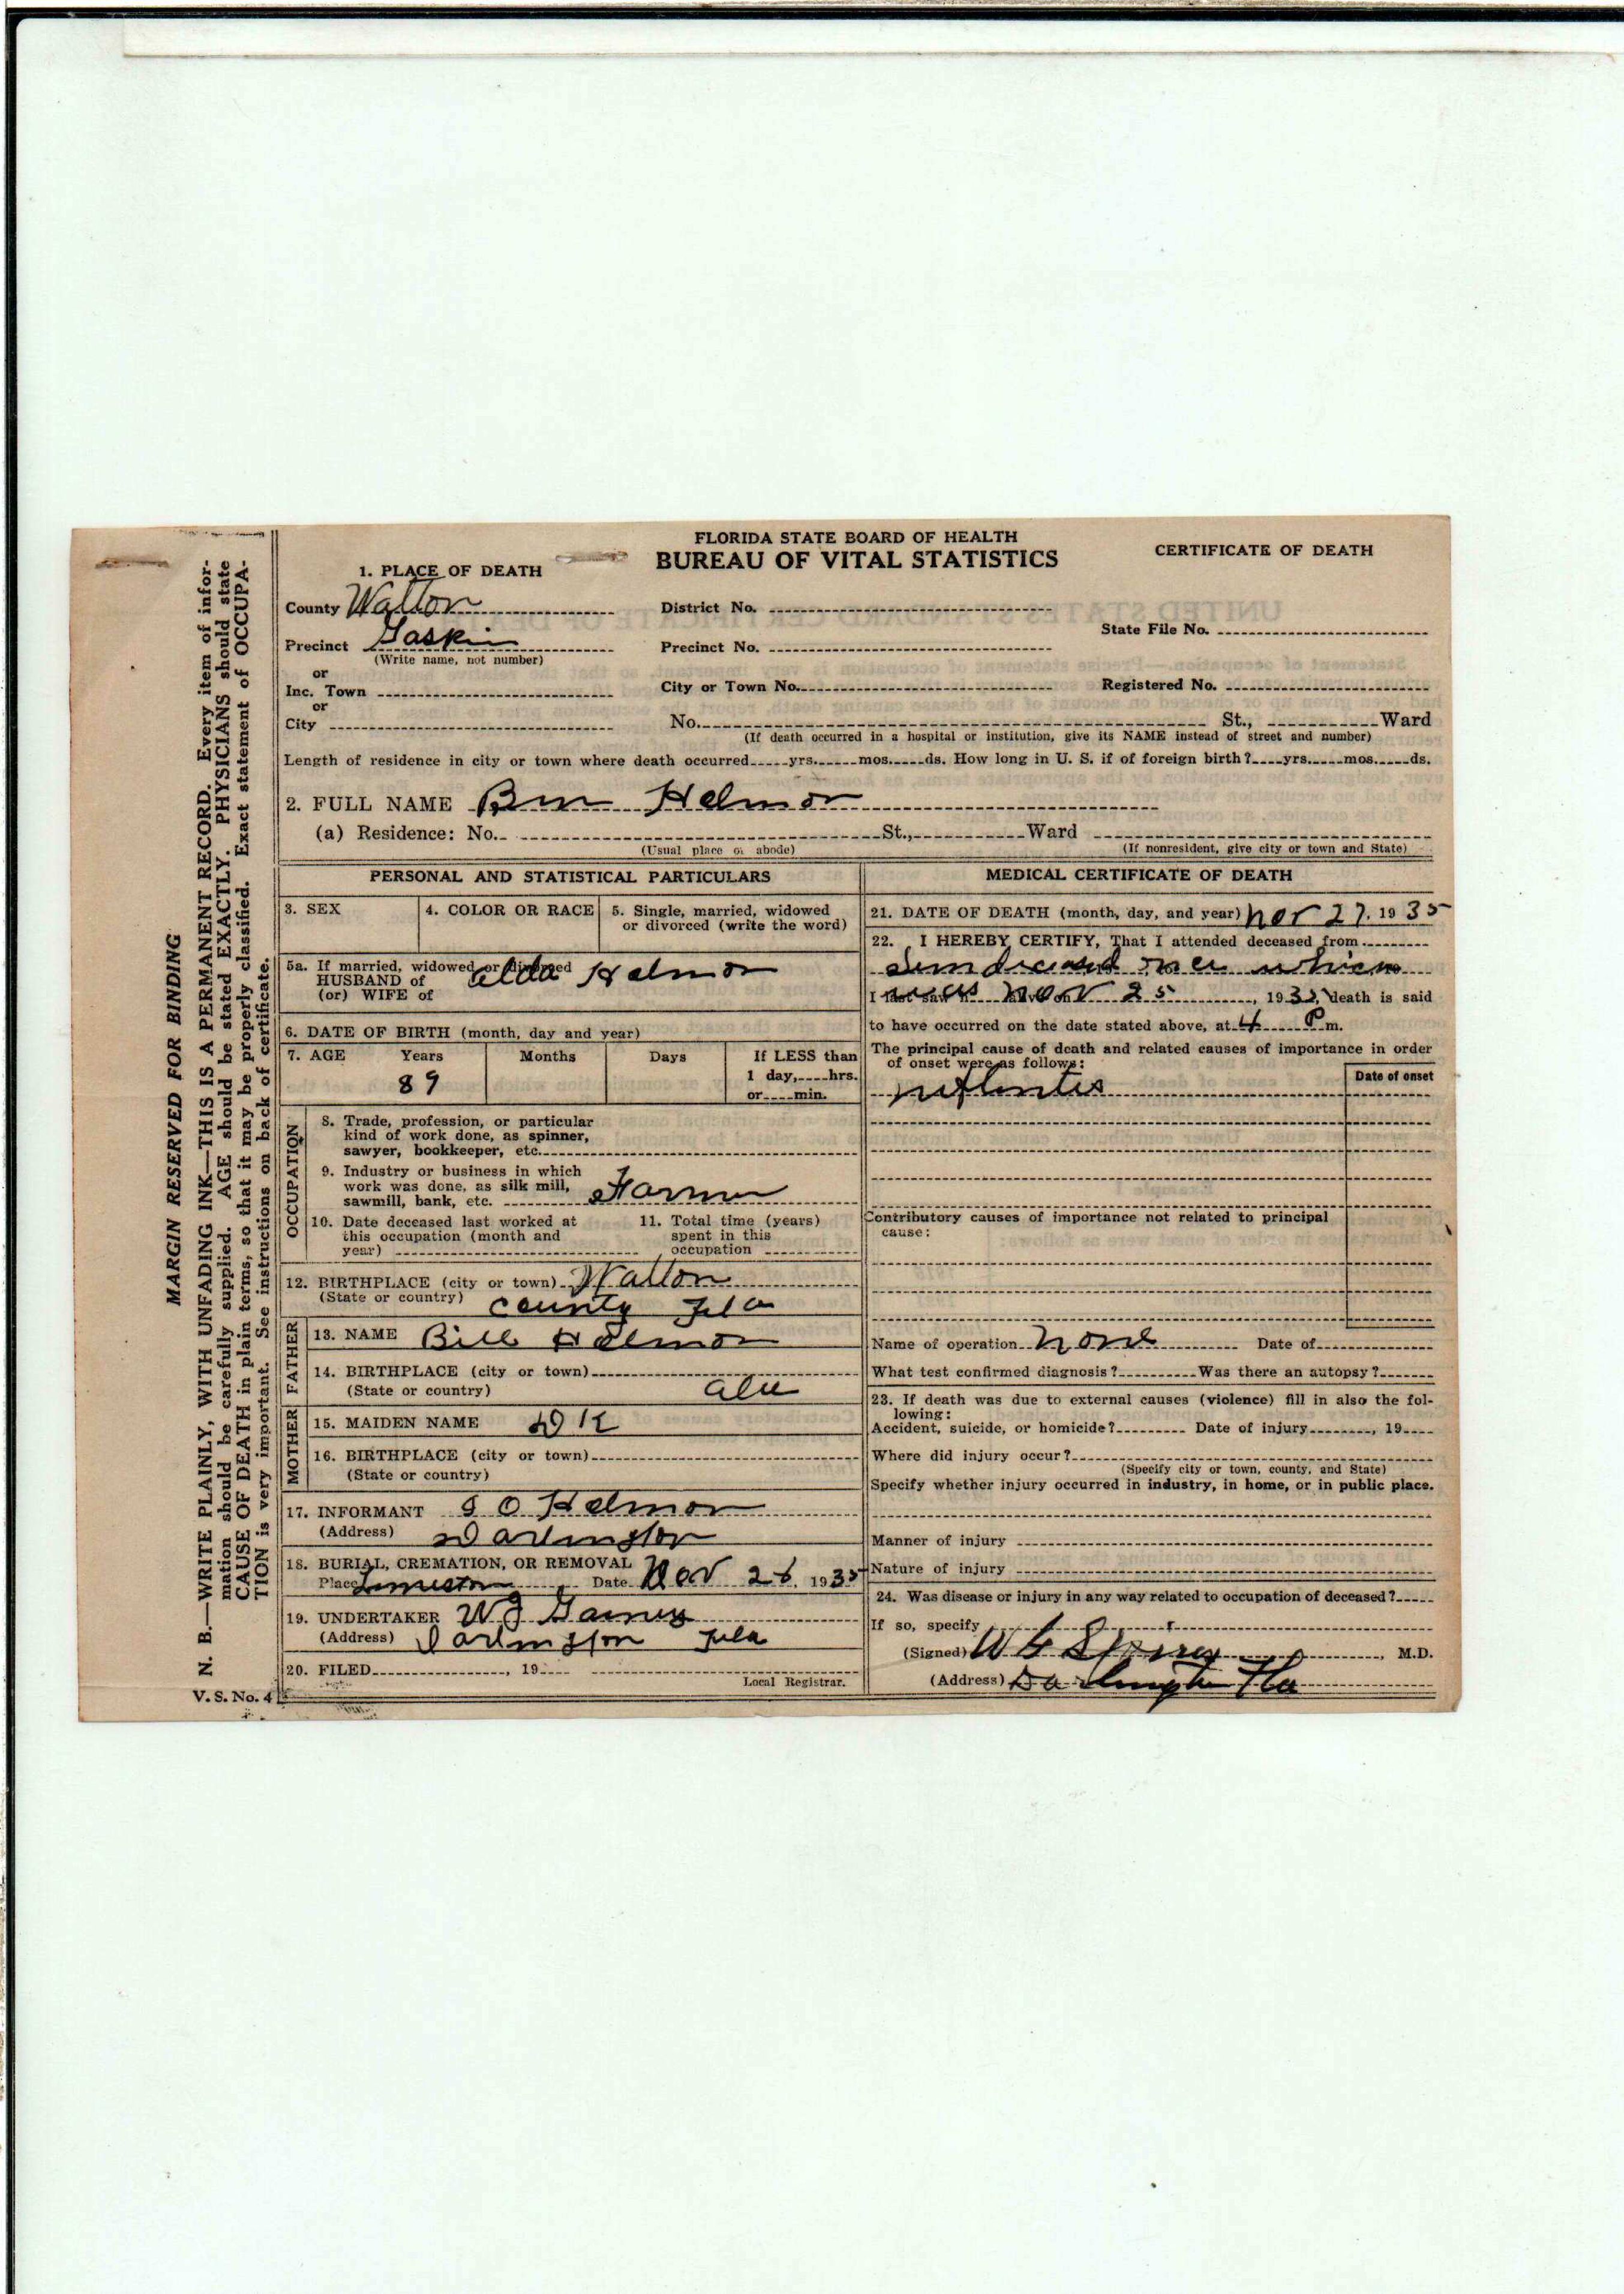 FLORIDA STATE BOARD OF HEALTH
BUREAU OF VITAL STATISTICS
CERTIFICATE OF DEATH
1. PLACE OF DEATH
County Walton
District No.
State File No.
Precinct Gaskin
(Write name, not number)
Precinct No.
or
Inc. Town
City or Town No.
Registered No.
or
City
No. St., Ward
(If death occurred in a hospital or institution, give its NAME instead of street and number)
Length of residence in city or town where death occurred yrs. mos. ds. How long in U. S. if of foreign birth? yrs. mos. ds.
2. FULL NAME Ben Helmor
(a) Residence: No. St., Ward
(Usual place of abode) (If nonresident, give city or town and State)
PERSONAL AND STATISTICAL PARTICULARS
3. SEX
4. COLOR OR RACE
5. Single, married, widowed
or divorced (write the word)
5a. If married, widowed or divorced
HUSBAND of
(or) WIFE of
Alda Helmor
6. DATE OF BIRTH (month, day and year)
7. AGE Years Months Days If LESS than
1 day, hrs.
or min.
89
OCCUPATION
8. Trade, profession, or particular
kind of work done, as spinner,
sawyer, bookkeeper, etc.
9. Industry or business in which
work was done, as silk mill,
sawmill, bank, etc. Farmer
10. Date deceased last worked at
this occupation (month and
year)
11. Total time (years)
spent in this
occupation
12. BIRTHPLACE (city or town) Walton
(State or country) County Fla
FATHER
13. NAME Bill Helmor
14. BIRTHPLACE (city or town)
(State or country) Ala
MOTHER
15. MAIDEN NAME D K
16. BIRTHPLACE (city or town)
(State or country)
17. INFORMANT Helmor
(Address) Darlington
18. BURIAL, CREMATION, OR REMOVAL
Place Date Nov 28, 1935
19. UNDERTAKER W J
(Address) Darlington Fla
20. FILED , 19
Local Registrar.
V. S. No. 4
MEDICAL CERTIFICATE OF DEATH
21. DATE OF DEATH (month, day, and year) Nov 27, 1935
22. I HEREBY CERTIFY, That I attended deceased from
deceased once which
I last saw h alive on was Nov 25, 1935, death is said
to have occurred on the date stated above, at 4 P m.
The principal cause of death and related causes of importance in order
of onset were as follows:
Date of onset
Nephritis
Contributory causes of importance not related to principal
cause:
Name of operation None Date of
What test confirmed diagnosis? Was there an autopsy?
23. If death was due to external causes (violence) fill in also the fol-
lowing:
Accident, suicide, or homicide? Date of injury , 19
Where did injury occur?
(Specify city or town, county, and State)
Specify whether injury occurred in industry, in home, or in public place.
Manner of injury
Nature of injury
24. Was disease or injury in any way related to occupation of deceased?
If so, specify
(Signed) , M.D.
(Address) Darlington Fla
MARGIN RESERVED FOR BINDING
N. B.—WRITE PLAINLY, WITH UNFADING INK—THIS IS A PERMANENT RECORD. Every item of infor-
mation should be carefully supplied. AGE should be stated EXACTLY. PHYSICIANS should state
CAUSE OF DEATH in plain terms, so that it may be properly classified. Exact statement of OCCUPA-
TION is very important. See instructions on back of certificate.